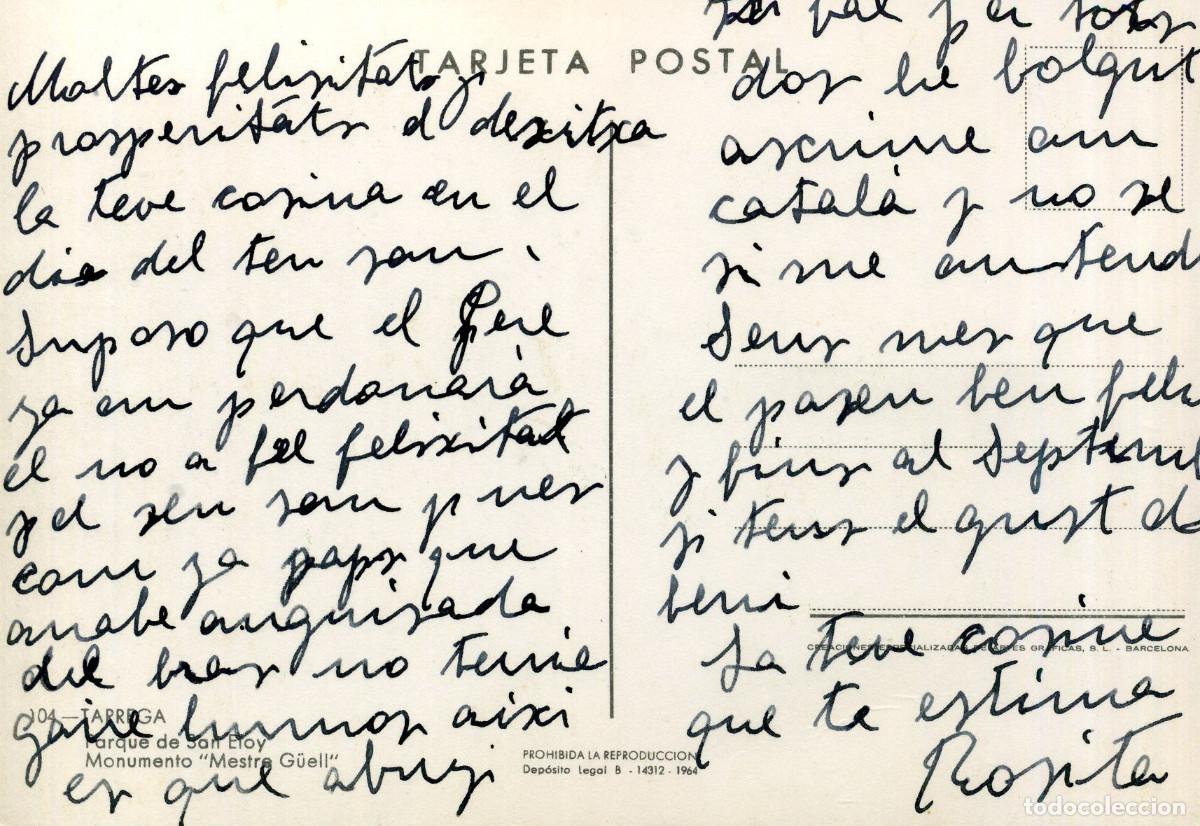 TARJETA POSTAL
Moltes felisitats y
prosperitats d desxitxa
la teve cosina en el
die del teu san,
Suposo que el Pere
ya em perdonarà
el no a fel felisxitat
pel seu san pues
com ya saps que
anabe anguisada
del bras no tenie
gaire humos aixi
es que abuy
val per tots
dos he bolgut
ascriure am
català y no se
si me antend
Seus mes que
el pasen ben feli
y fins al Septem
si tens el gust d
beni
La teve cosine
que te estima
Rosita
104.—TARREGA
Parque de San Eloy
Monumento "Mestre Güell"
PROHIBIDA LA REPRODUCCION
Depósito Legal B - 14312 - 1964
CREACIONES ESPECIALIZADAS DE ARTES GRÁFICAS, S. L. - BARCELONA
todocoleccion